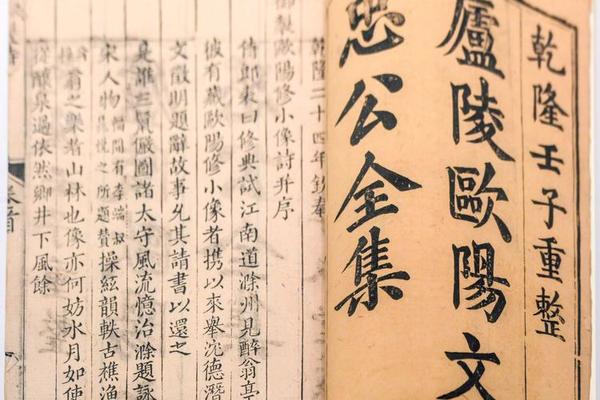 乾隆壬子重鐫
廬陵歐陽文
忠公全集
乾隆二十四年欽奉
御製歐陽修小像詩并序
侍郎裘曰修典試江南道滁州見醉翁亭
彼有藏歐陽修小像者攜以來舉沈德潛
文徵明題辭故事乞其請書以還之
是誰三黌儼圖諸太守風流憶治滁題詠
宋人物 李端叔 所題贊 操絃韻軼古樵漁
翁之樂者山林也像亦何妨水月如使
從釀泉過依然鄉井下風餘